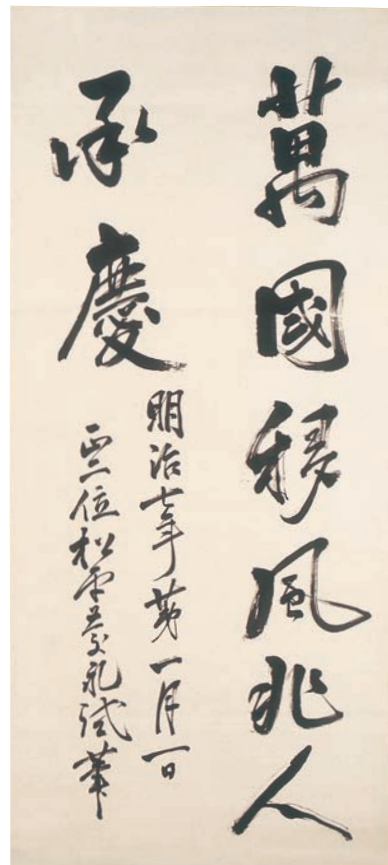 萬國移風兆人
承慶
明治七年第一月一日
正二位松平慶永試筆